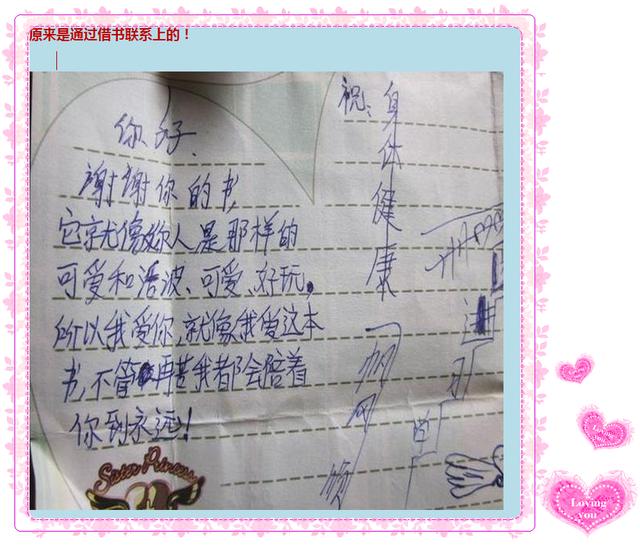 原来是通过借书联系上的！
你好
谢谢你的书，
它就像你人是那样的
可爱和活波、可爱、好玩。
所以我爱你，就像我爱这本
书，不管再苦我都会陪着
你到永远！
祝：身体健康
一帆风顺
Sister Princess
Loving
you
Loving
you